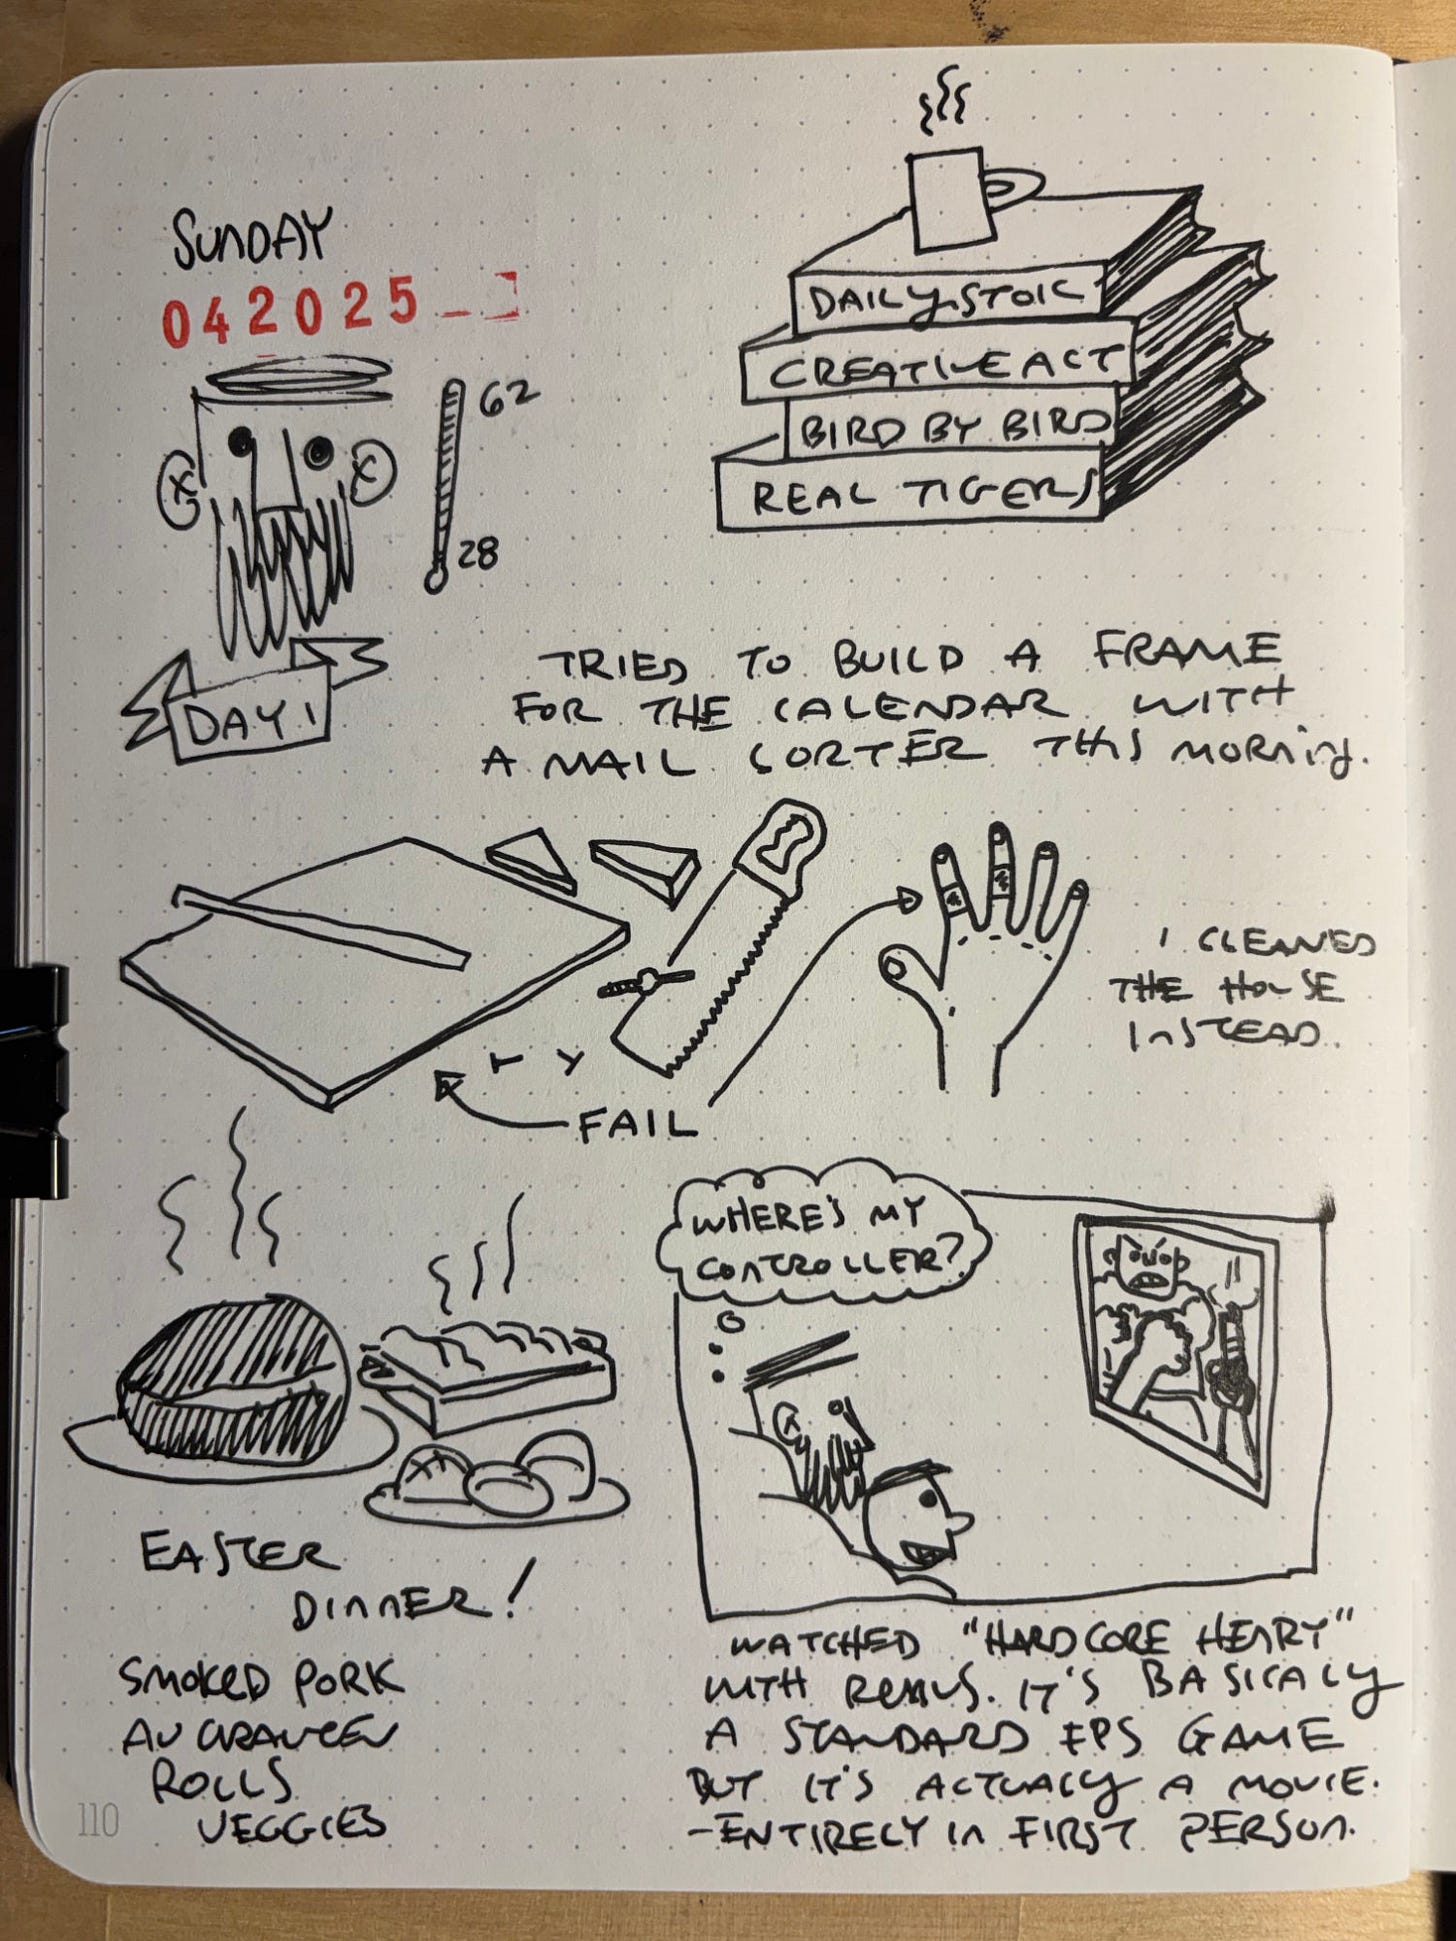 SUNDAY
042025
62
28
DAY 1
DAILY STOIC
CREATIVE ACT
BIRD BY BIRD
REAL TIGERS
TRIED TO BUILD A FRAME
FOR THE CALENDAR WITH
A MAIL SORTER THIS MORNING.
FAIL
I CLEANED
THE HOUSE
INSTEAD.
EASTER
DINNER!
SMOKED PORK
AU GRAUTEN
ROLLS
VEGGIES
WHERE'S MY
CONTROLLER?
WATCHED "HARDCORE HENRY"
WITH REMUS. IT'S BASICALY
A STANDARD FPS GAME
BUT IT'S ACTUALLY A MOVIE.
-ENTIRELY IN FIRST PERSON.
110